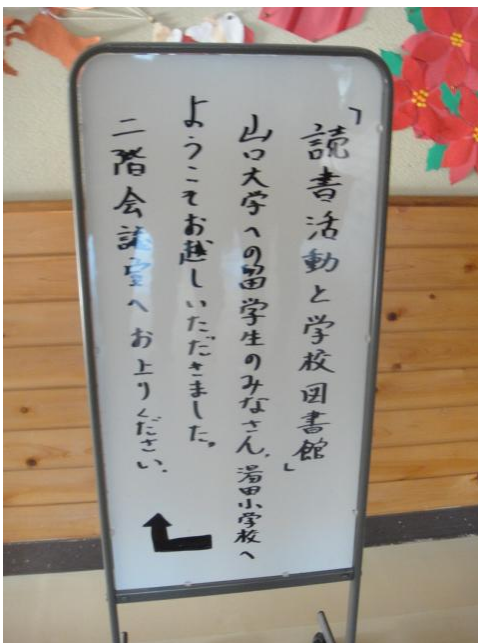 「読書活動と学校図書館」
山口大学への留学生のみなさん、湯田小学校へ
ようこそお越しいただきました。
二階会議室へお上りください。